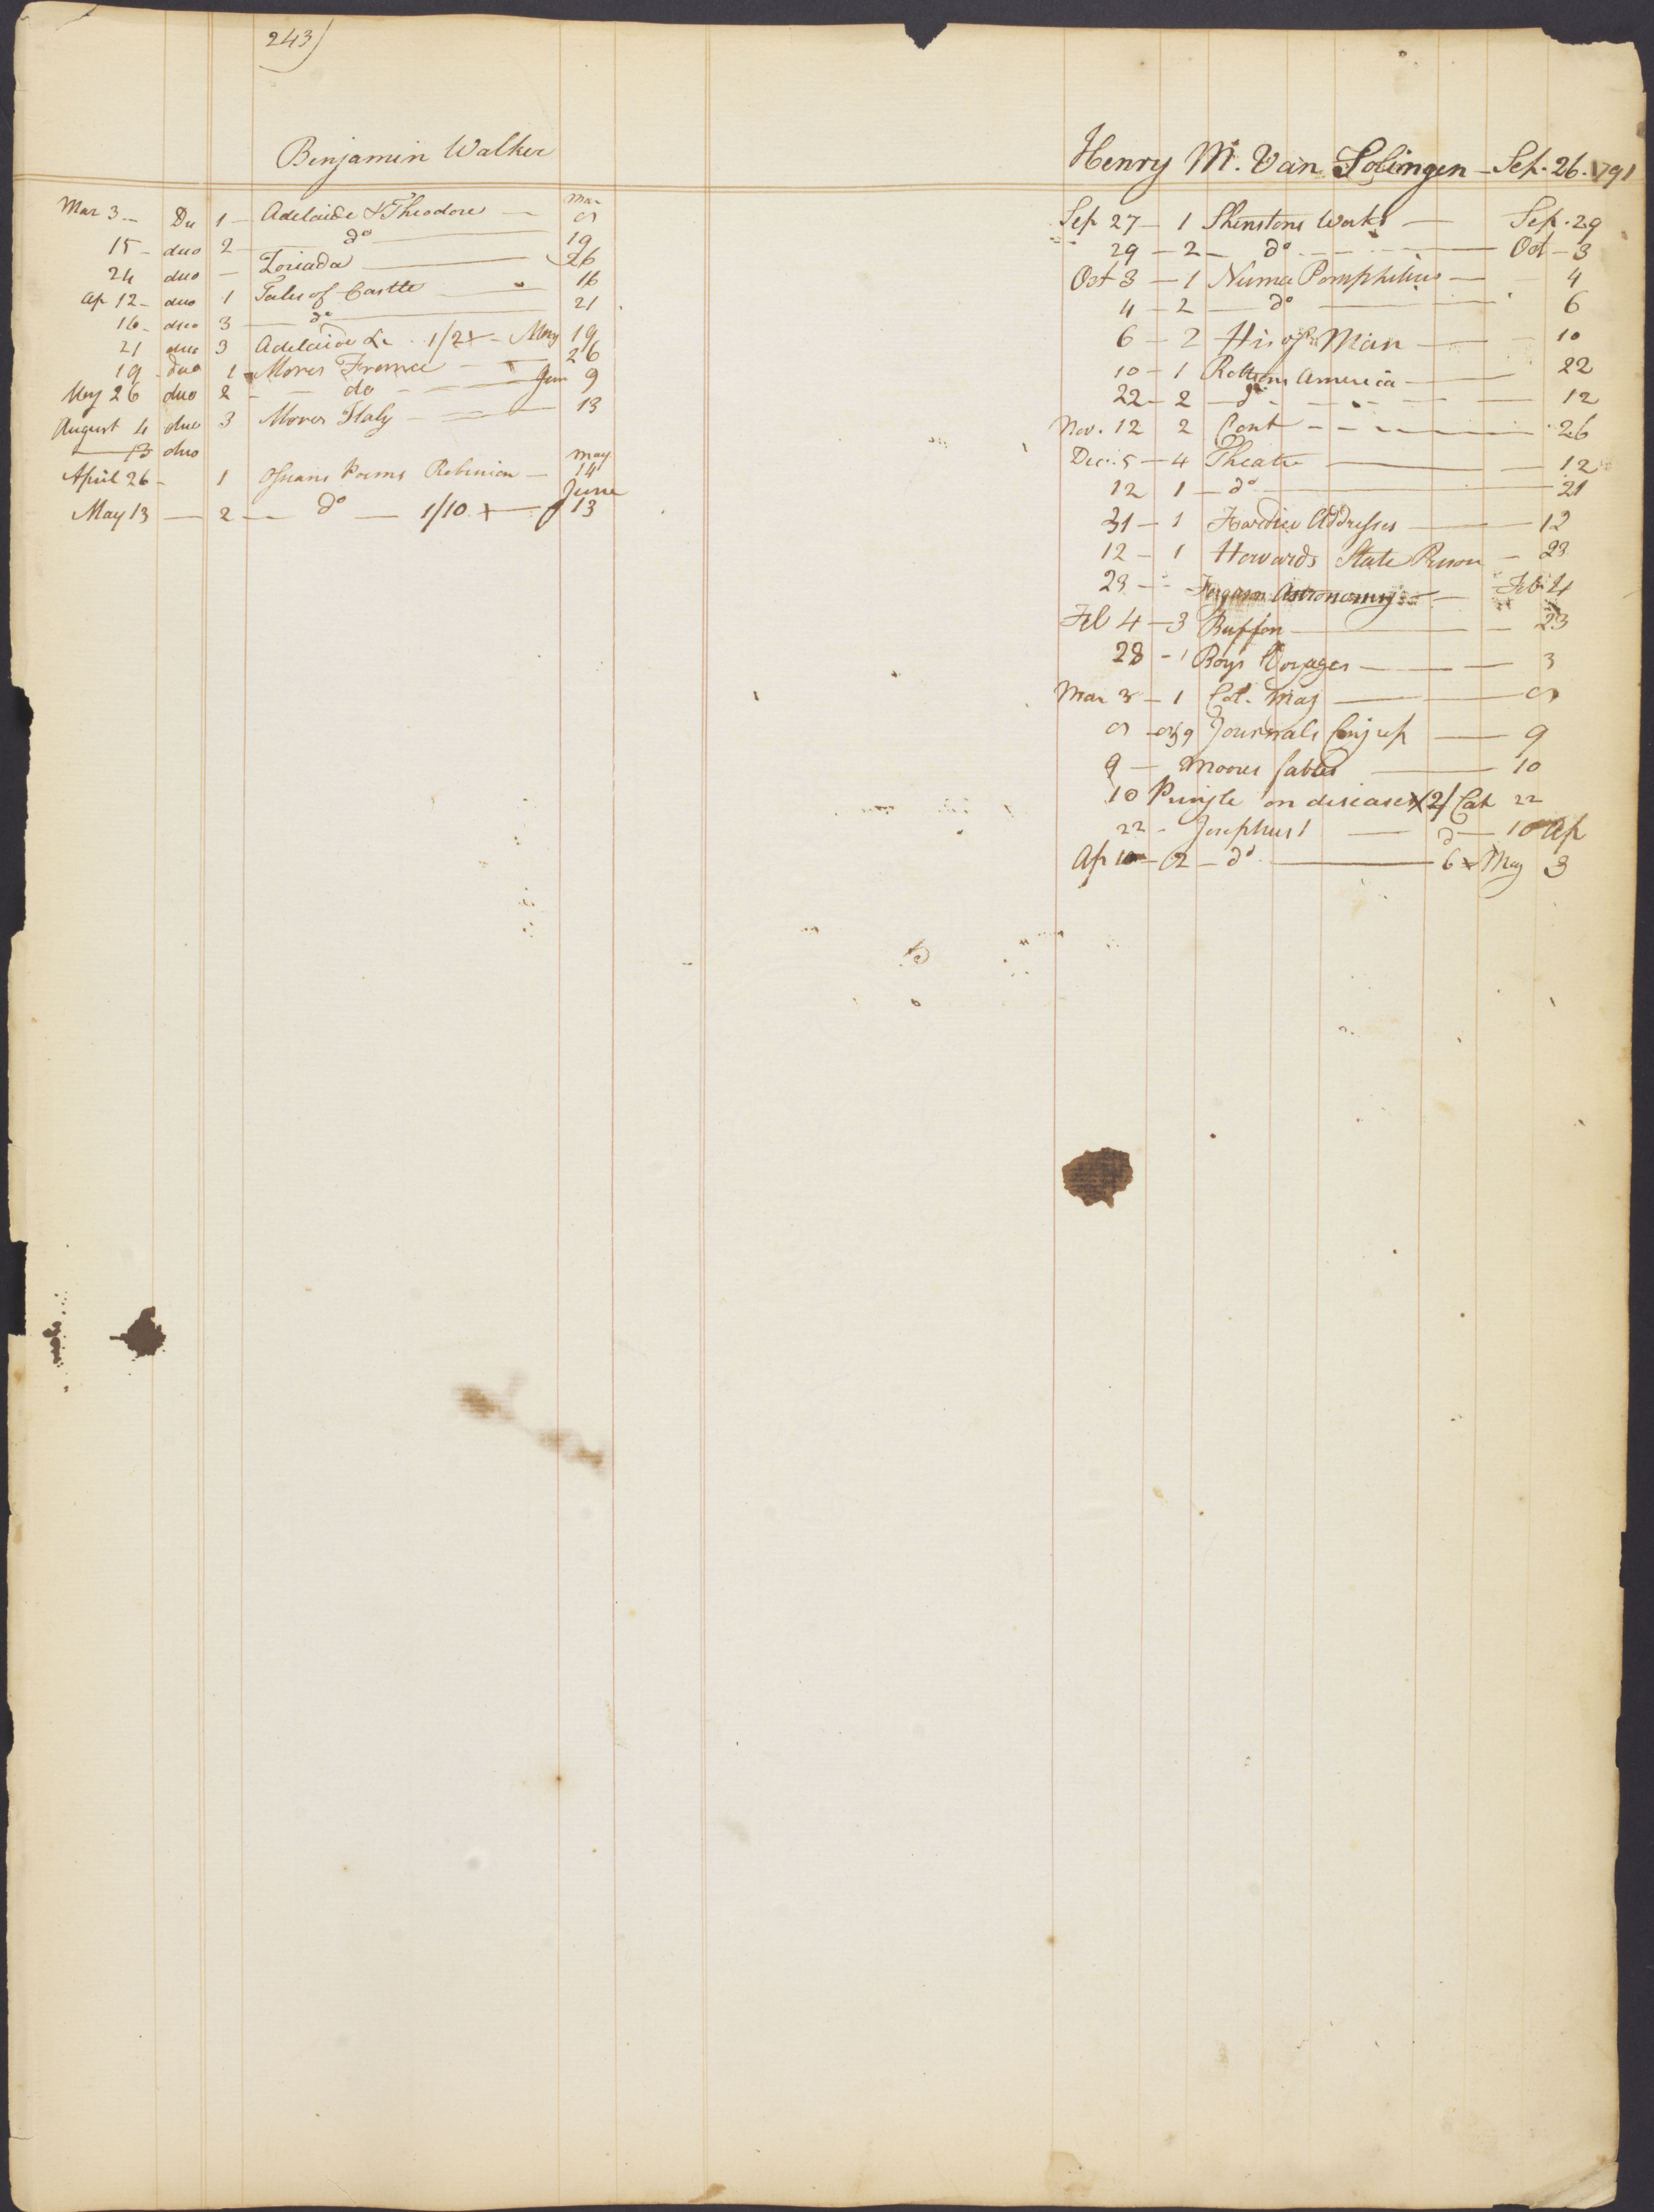 243)
Benjamin Walker
Mar
Mar 3 - Du 1 - Adelaide & Theodore - 
15 - duo 2 - do - 19
24 duo - Zoriada - 26
Ap 12 - duo 1 Tales of Castle - 16
16 - duo 3 - do - 21
21 duo 3 Adelaide &c. 1/2 + - May 19
19 - duo 1 Mores France - 26
May 26 duo 2 - do - Jun 9
August 4 duo 3 Mores Italy - 13
13 duo
May
April 26 - 1 Ossians Poems Robinson - 14
June
May 13 - 2 - do - 1/10 + - 13
Henry M. Van Solingen - Sep. 26. 1791
Sep 27 - 1 Shenstons Works - Sep. 29
29 - 2 - do - Oct - 3
Oct 3 - 1 Numa Pomphilius - 4
4 - 2 - do - 6
6 - 2 His of Man - 10
10 - 1 America - 22
22 - 2 - do - 12
Nov. 12 2 Cont - 26
Dec. 5 - 4 Theatre - 12
12 1 - do - 21
31 - 1 Addresses - 12
12 - 1 Howards State Prison - 23
23 - Ferguson Astronomy - Feb 4
Feb 4 - 3 Buffon - 23
28 - 1 Boys Voyages - 3
Mar 3 - 1 Col. Mag -
Journals - 9
9 - Moores fables - 10
10 Pringle on diseases X 2/ Cat 22
22 - Josephus 1 - 10 Ap
Ap 10 - 2 - do - 6 x May 3